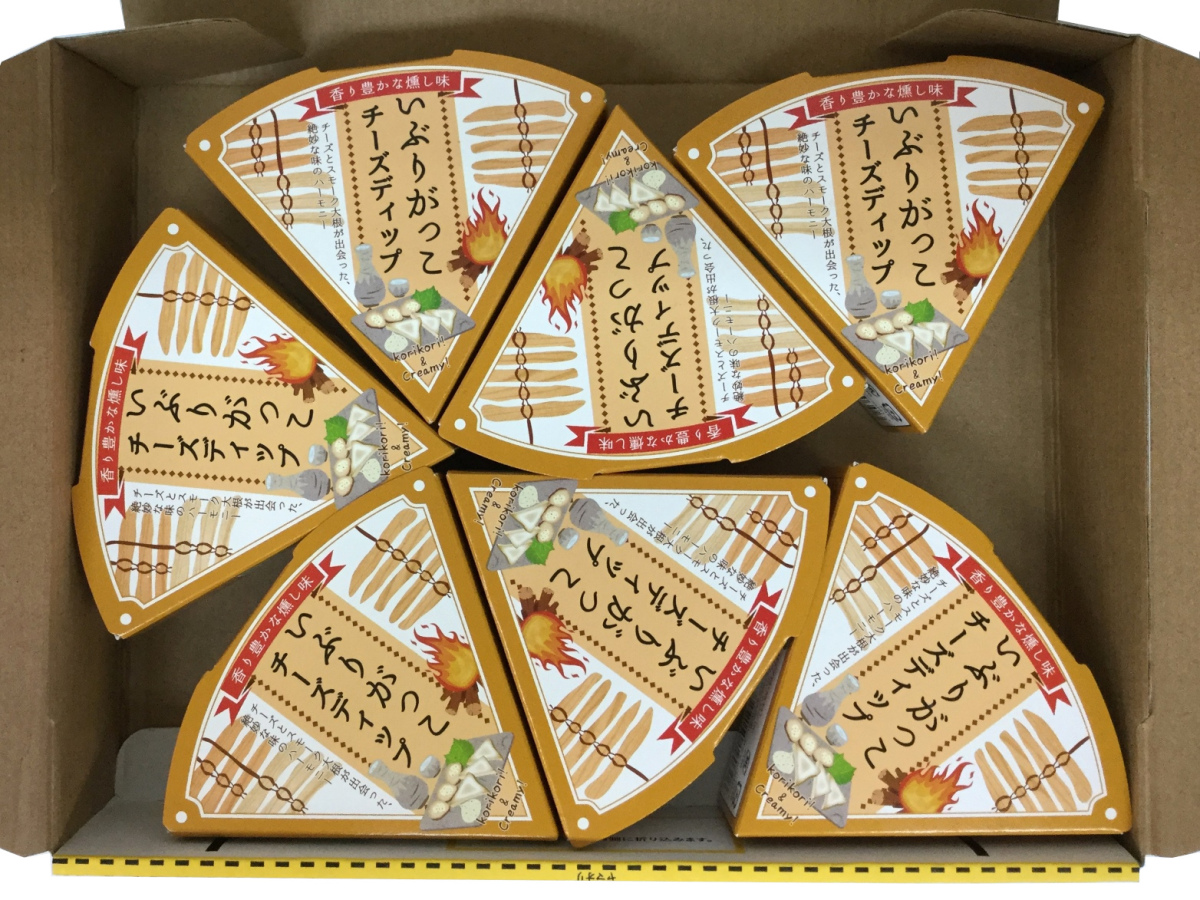 香り豊かな燻し味
いぶりがっこ
チーズディップ
チーズとスモーク大根が出会った、
絶妙な味のハーモニー
korikori!
&
Creamy!
香り豊かな燻し味
いぶりがっこ
チーズディップ
チーズとスモーク大根が出会った、
絶妙な味のハーモニー
korikori!
&
Creamy!
香り豊かな燻し味
いぶりがっこ
チーズディップ
チーズとスモーク大根が出会った、
絶妙な味のハーモニー
korikori!
&
Creamy!
香り豊かな燻し味
いぶりがっこ
チーズディップ
チーズとスモーク大根が出会った、
絶妙な味のハーモニー
korikori!
&
Creamy!
香り豊かな燻し味
いぶりがっこ
チーズディップ
チーズとスモーク大根が出会った、
絶妙な味のハーモニー
korikori!
&
Creamy!
香り豊かな燻し味
いぶりがっこ
チーズディップ
チーズとスモーク大根が出会った、
絶妙な味のハーモニー
korikori!
&
Creamy!
香り豊かな燻し味
いぶりがっこ
チーズディップ
チーズとスモーク大根が出会った、
絶妙な味のハーモニー
korikori!
&
Creamy!
に折り込みます。
ヤマオリ